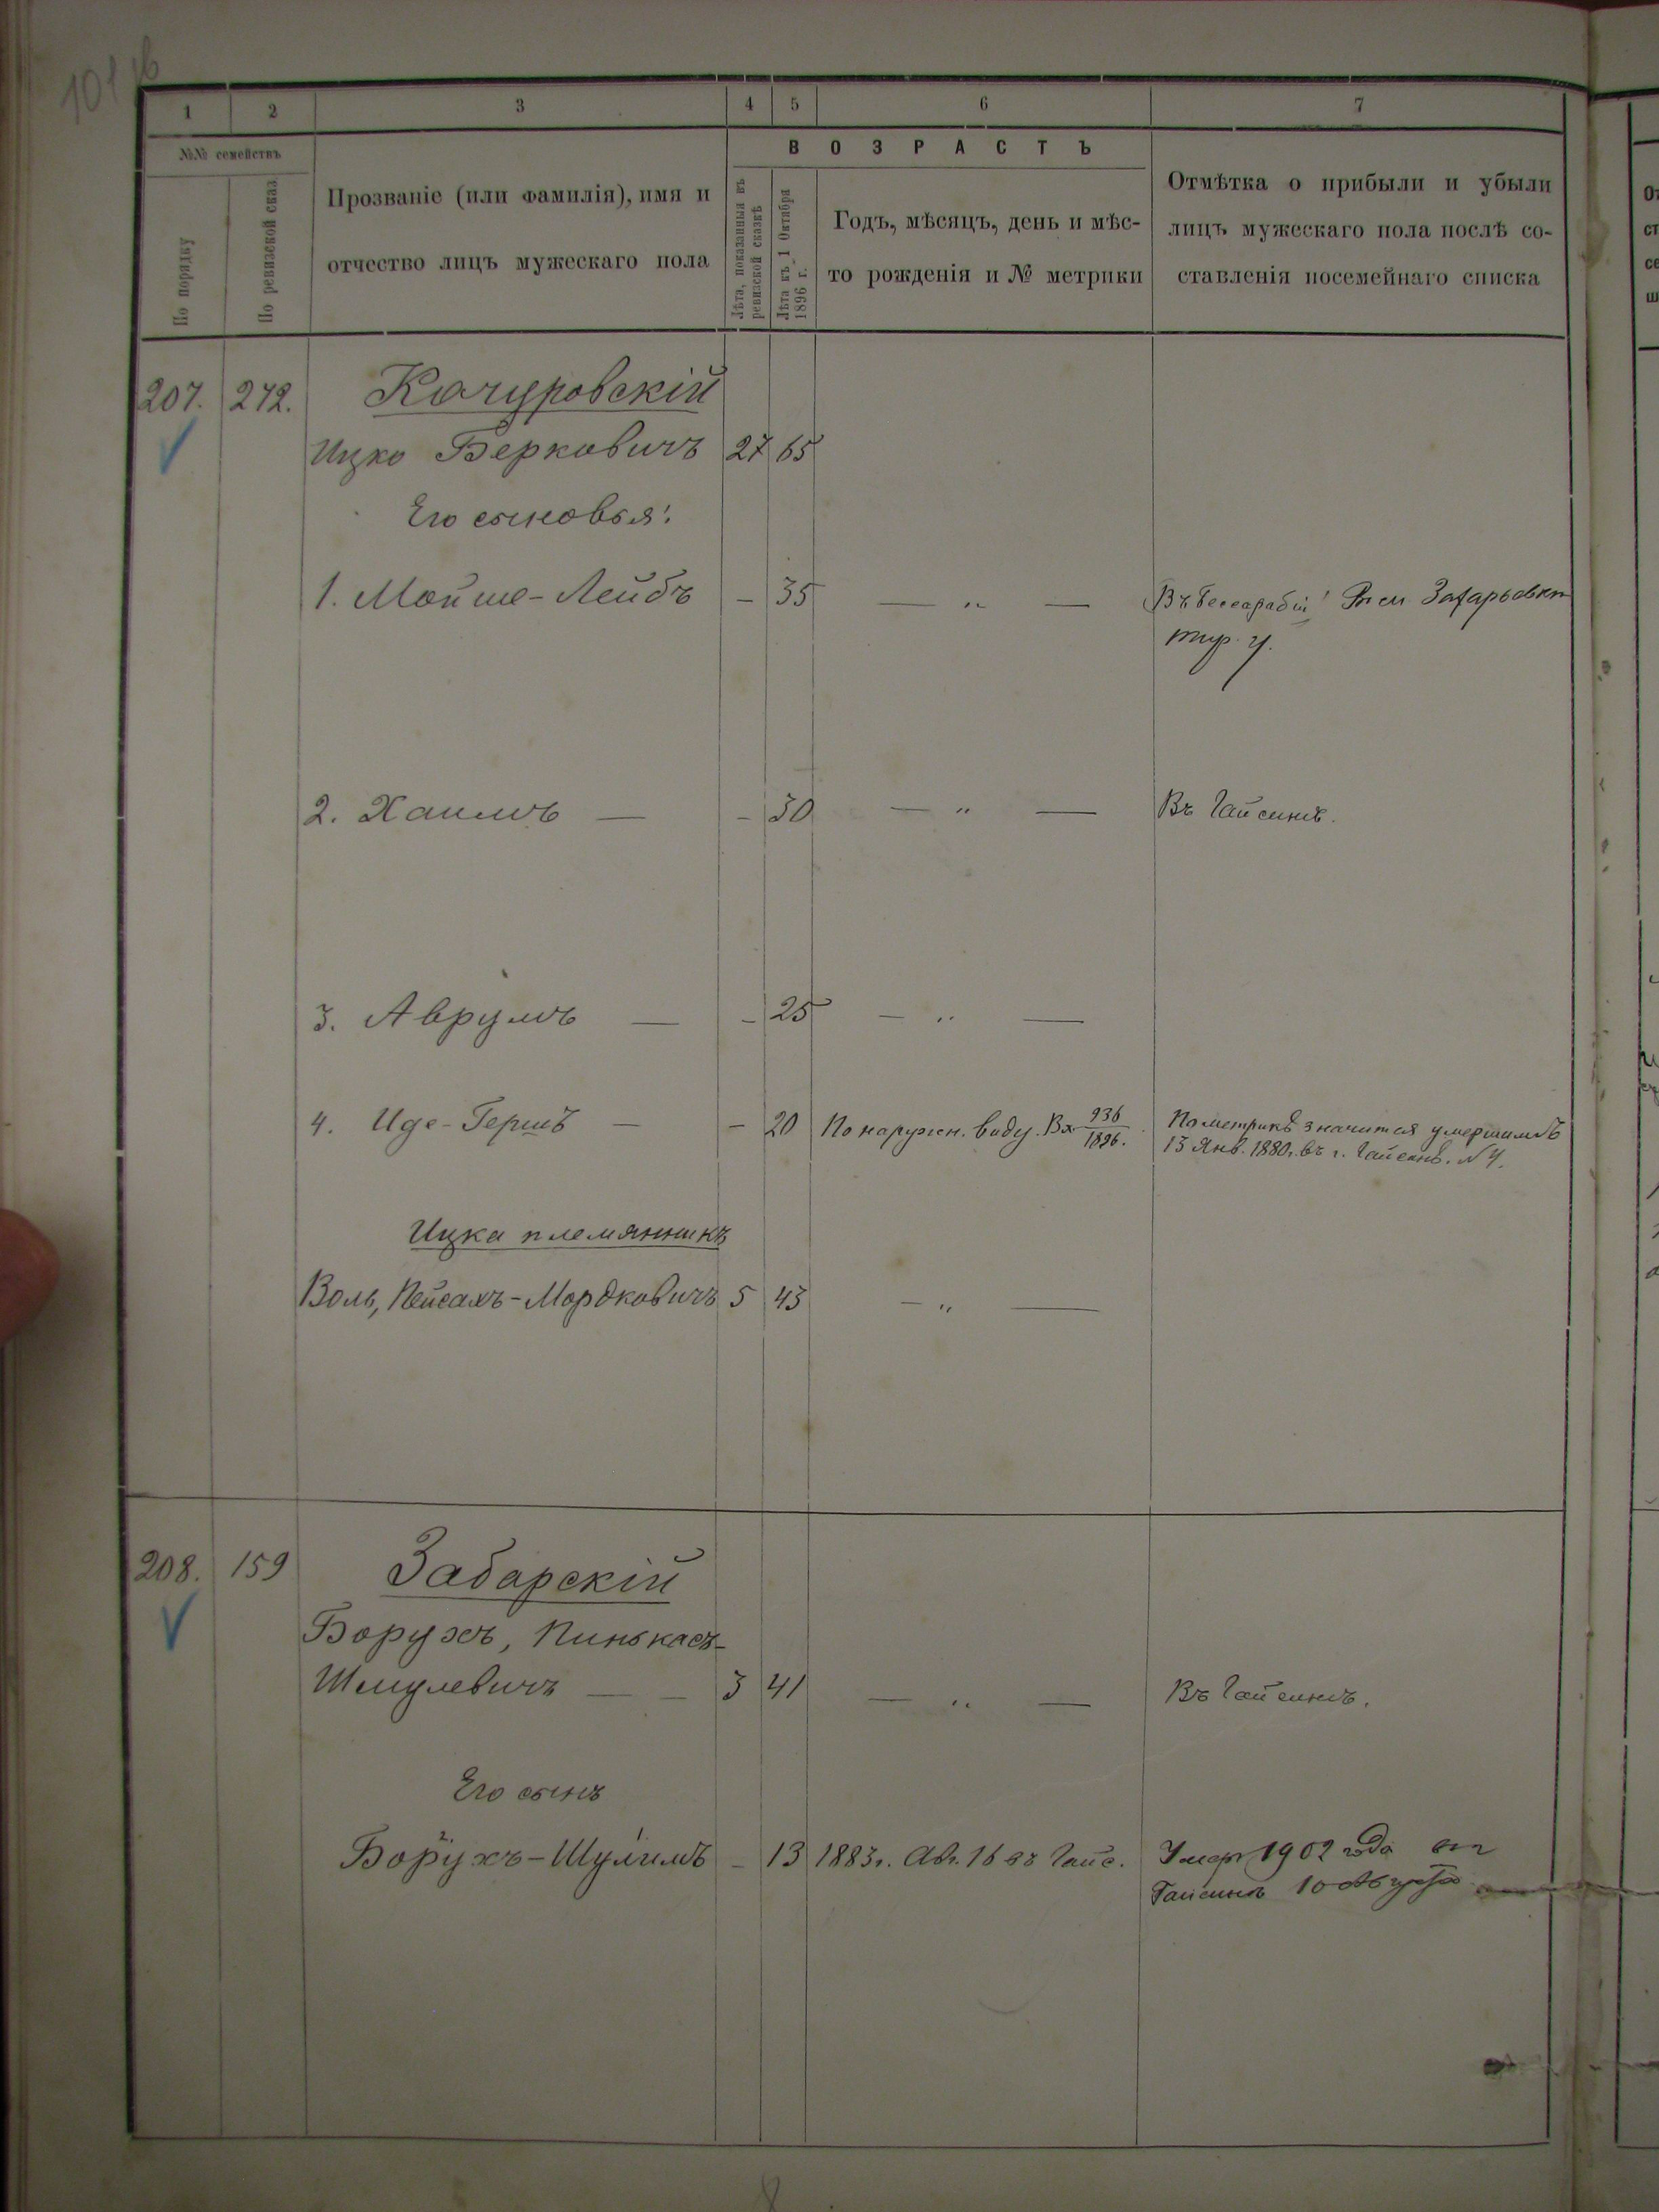 1 2 3 4 5 6 7
№№ семействъ
По порядку
По ревизской сказ.
Прозваніе (или фамилія), имя и
отчество лицъ мужескаго пола
ВОЗРАСТЪ
Лѣта, показанныя въ
ревизской сказкѣ
Лѣта къ 1 Октября
1896 г.
Годъ, мѣсяцъ, день и мѣс-
то рожденія и № метрики
Отмѣтка о прибыли и убыли
лицъ мужескаго пола послѣ со-
ставленія посемейнаго списка
207. 272. Качуровскій
Ицко Берковичъ 27 65
Его сыновья:
1. Мойше-Лейбъ – 35 — „ — Въ Бессарабіи
тир. у.
2. Хаимъ — – 30 — „ — Въ Гайсинѣ.
3. Аврумъ — – 25 — „ —
4. Иде-Гершъ — – 20 По наружн. виду. Вх 936/1896. По метрикѣ значится умершимъ
13 Янв. 1880 г. въ г. Гайсинѣ. №4.
Ицка племянникъ
Воль, Пейсахъ-Мордковичъ 5 43 — „ —
208. 159 Забарскій
Борухъ, Пинькасъ-
Шмулевичъ — – 3 41 — „ — Въ Гайсинѣ.
Его сынъ
Борухъ-Шулимъ – 13 1883 г. Авг. 16 въ Гайс. Умеръ 1902 года
Гайсинѣ 10 Августа